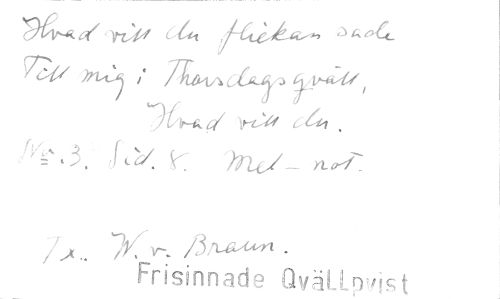 Hvad vill du flickan sade
Till mig i Thorsdagsqväll,
Hvad vill du.
No. 3. Sid. 8. Mel - not.
Tx. W. v. Braun.
Frisinnade Qvällpvist